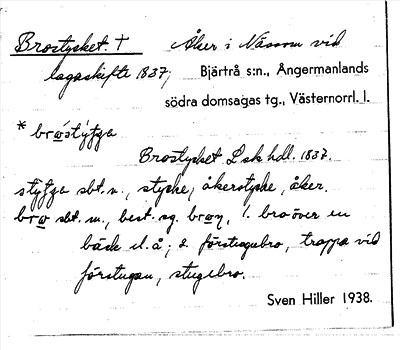 Brostycket. † Åker i Nässom vid
lagaskifte 1837, Bjärtrå s:n., Ångermanlands
södra domsagas tg., Västernorrl. l.
Brostycket L sk hdl. 1837.
sbt. n., stycke, åkerstycke, åker.
bro sbt. m., best. sg. 1. bro över en
bäck el. å; 2. förstugubro, trappa vid
förstugan, stugubro.
Sven Hiller 1938.